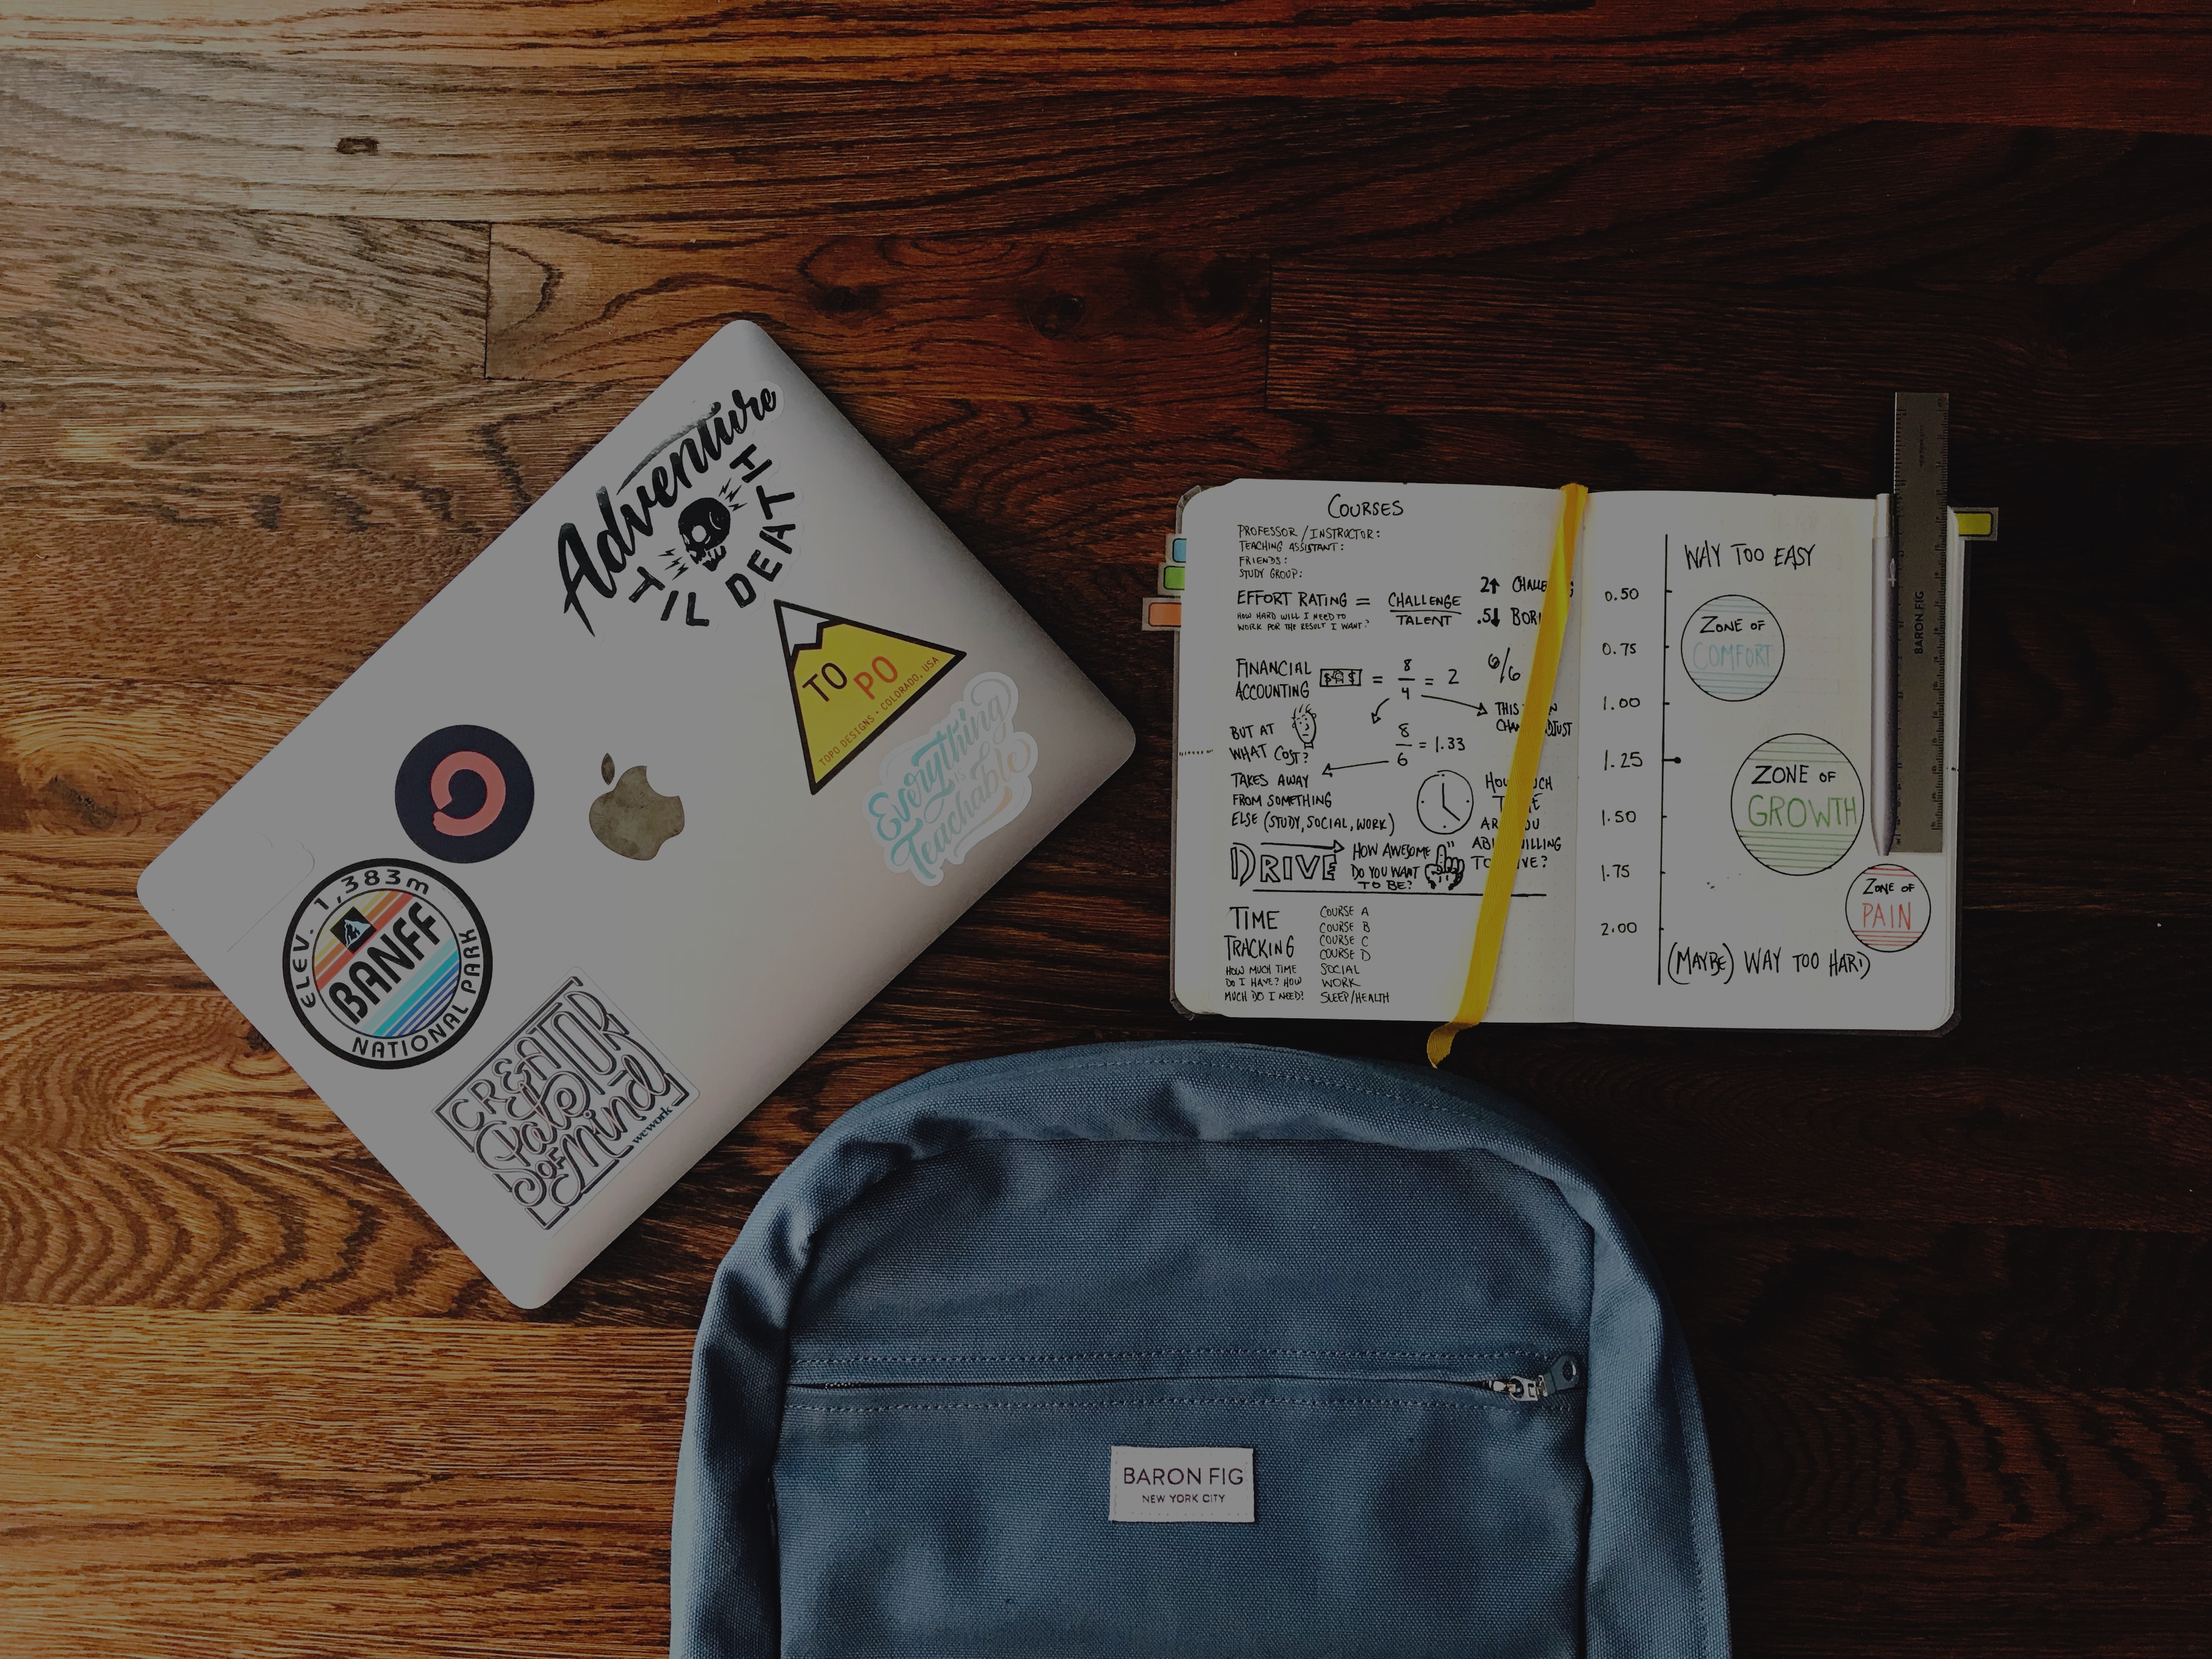 Adventure
'TIL DEATH
TO PO
TOPO DESIGNS • COLORADO, USA
Everything
is
Teachable
ELEV. 1,383m
BANFF
NATIONAL PARK
CREATOR
State
OF Mind
wework
COURSES
PROFESSOR / INSTRUCTOR:
TEACHING ASSISTANT:
FRIENDS:
STUDY GROUP:
EFFORT RATING = CHALLENGE
TALENT
HOW HARD WILL I NEED TO
WORK FOR THE RESULT I WANT?
2↑
.5↓
FINANCIAL
ACCOUNTING
$ $ = 8/4 = 2
6/6
THIS
BUT AT
WHAT COST?
8/6 = 1.33
TAKES AWAY
FROM SOMETHING
ELSE (STUDY, SOCIAL, WORK)
DRIVE
HOW AWESOME
DO YOU WANT
TO BE?
TIME
TRACKING
HOW MUCH TIME
DO I HAVE? HOW
MUCH DO I NEED?
COURSE A
COURSE B
COURSE C
COURSE D
SOCIAL
WORK
SLEEP/HEALTH
WAY TOO EASY
0.50
ZONE OF
COMFORT
0.75
1.00
1.25
ZONE OF
GROWTH
1.50
1.75
ZONE OF
PAIN
2.00
(MAYBE) WAY TOO HARD
BARON FIG
BARON FIG
NEW YORK CITY